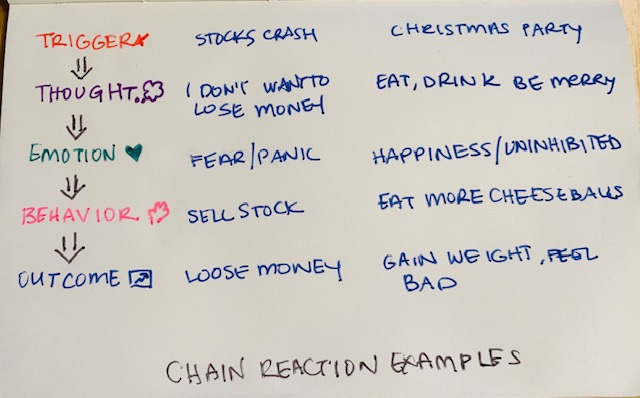 TRIGGER STOCKS CRASH CHRISTMAS PARTY
THOUGHT I DON'T WANT TO EAT, DRINK BE MERRY
LOSE MONEY
EMOTION FEAR/PANIC HAPPINESS/UNINHIBITED
BEHAVIOR SELL STOCK EAT MORE CHEESEBALLS
OUTCOME LOOSE MONEY GAIN WEIGHT, FEEL
BAD
CHAIN REACTION EXAMPLES